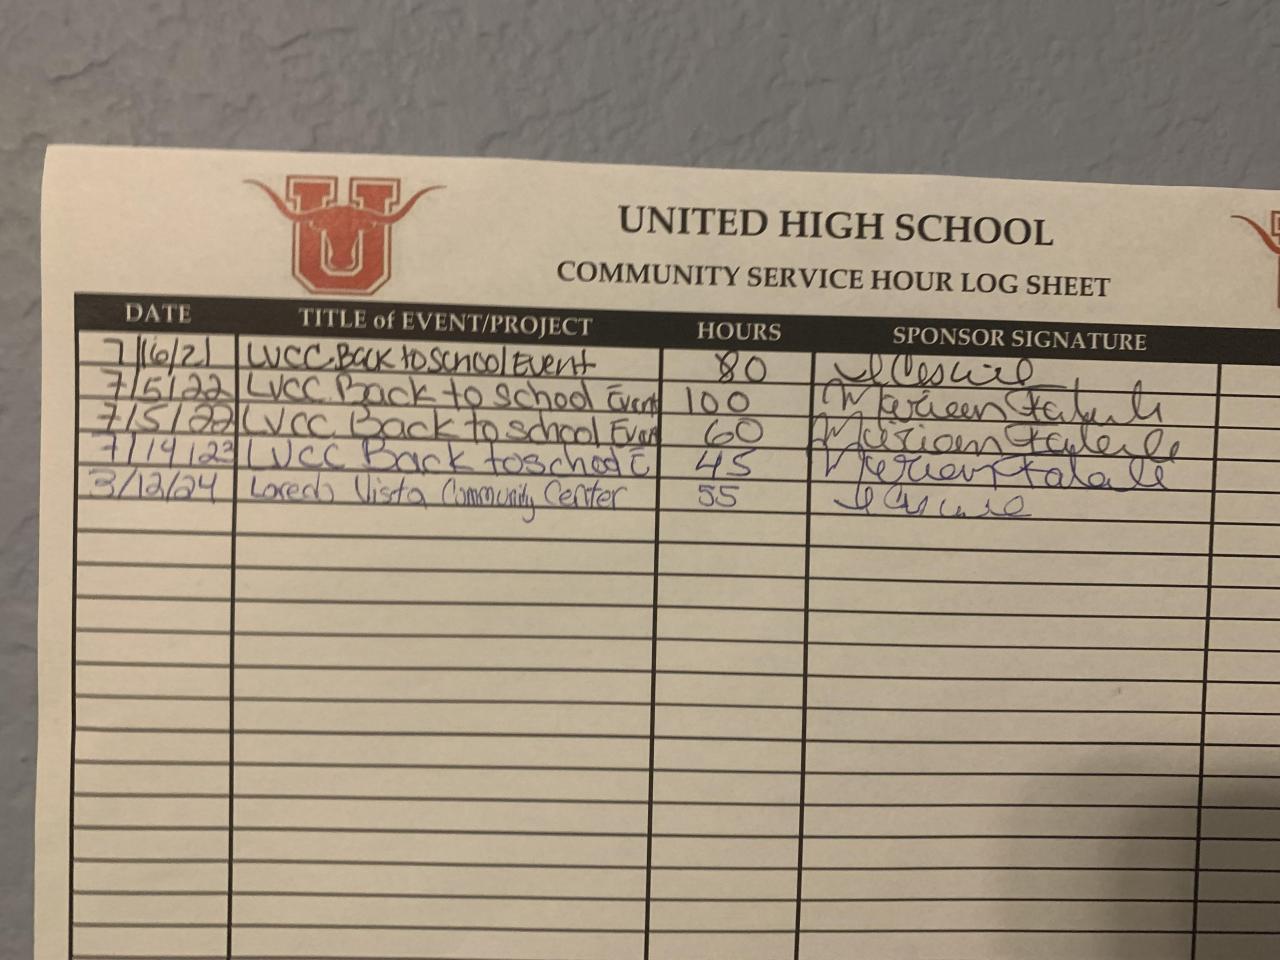 U
UNITED HIGH SCHOOL
COMMUNITY SERVICE HOUR LOG SHEET
DATE TITLE of EVENT/PROJECT HOURS SPONSOR SIGNATURE
7/16/21 LVCC Back to school Event 80
7/5/22 LVCC Back to school Event 100
7/5/22 LVCC Back to school Event 60
7/14/23 LVCC Back to school E 45
3/12/24 Laredo Vista Community Center 55